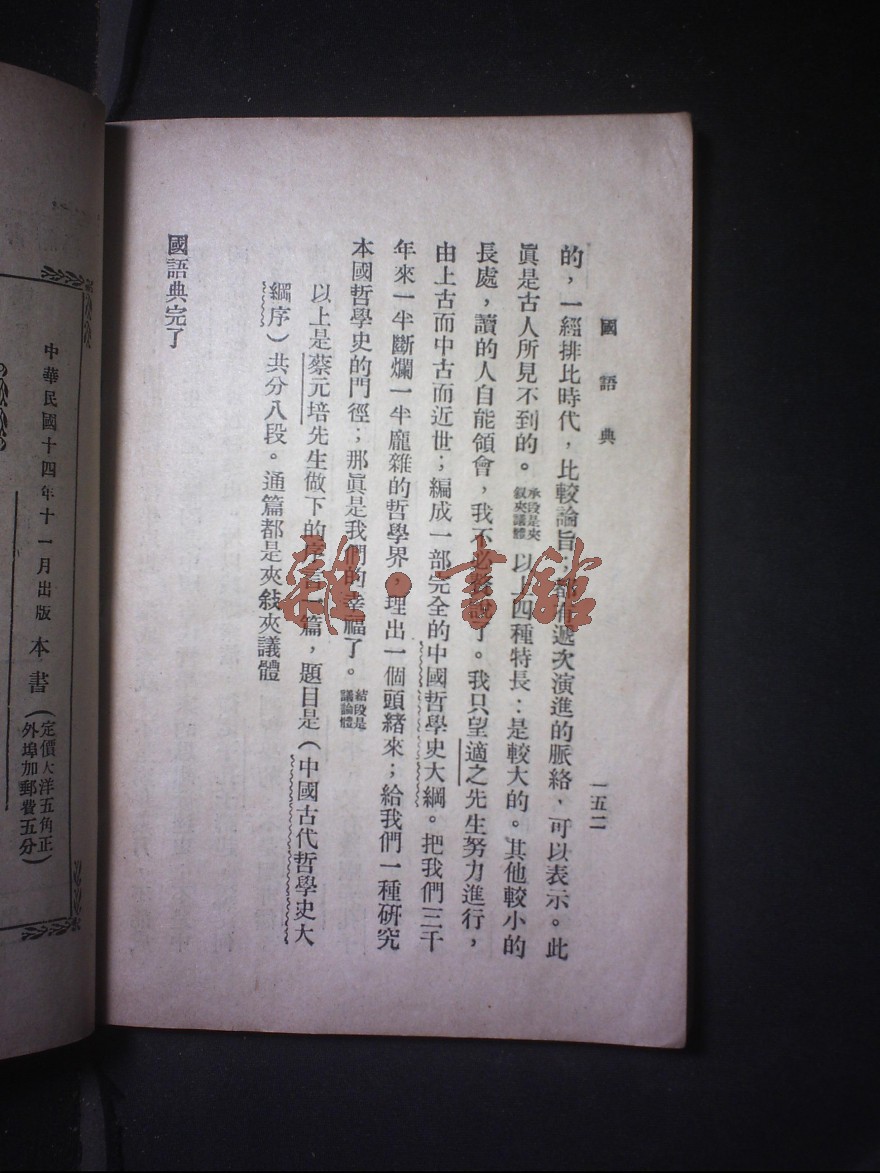 國語典
一五二
的，一經排比時代，比較論旨；都有遞次演進的脈絡，可以表示。此
眞是古人所見不到的。承段是夾叙夾議體以上四種特長：是較大的。其他較小的
長處，讀的人自能領會，我不必贅說了。我只望適之先生努力進行，
由上古而中古而近世；編成一部完全的中國哲學史大綱。把我們三千
年來一半斷爛一半龐雜的哲學界，理出一個頭緖來；給我們一種研究
本國哲學史的門徑；那眞是我們的幸福了。結段是議論體
以上是蔡元培先生做下的序言一篇，題目是（中國古代哲學史大
綱序）共分八段。通篇都是夾敍夾議體
國語典完了
中華民國十四年十一月出版
本書（定價大洋五角正
外埠加郵費五分）
雜·書館